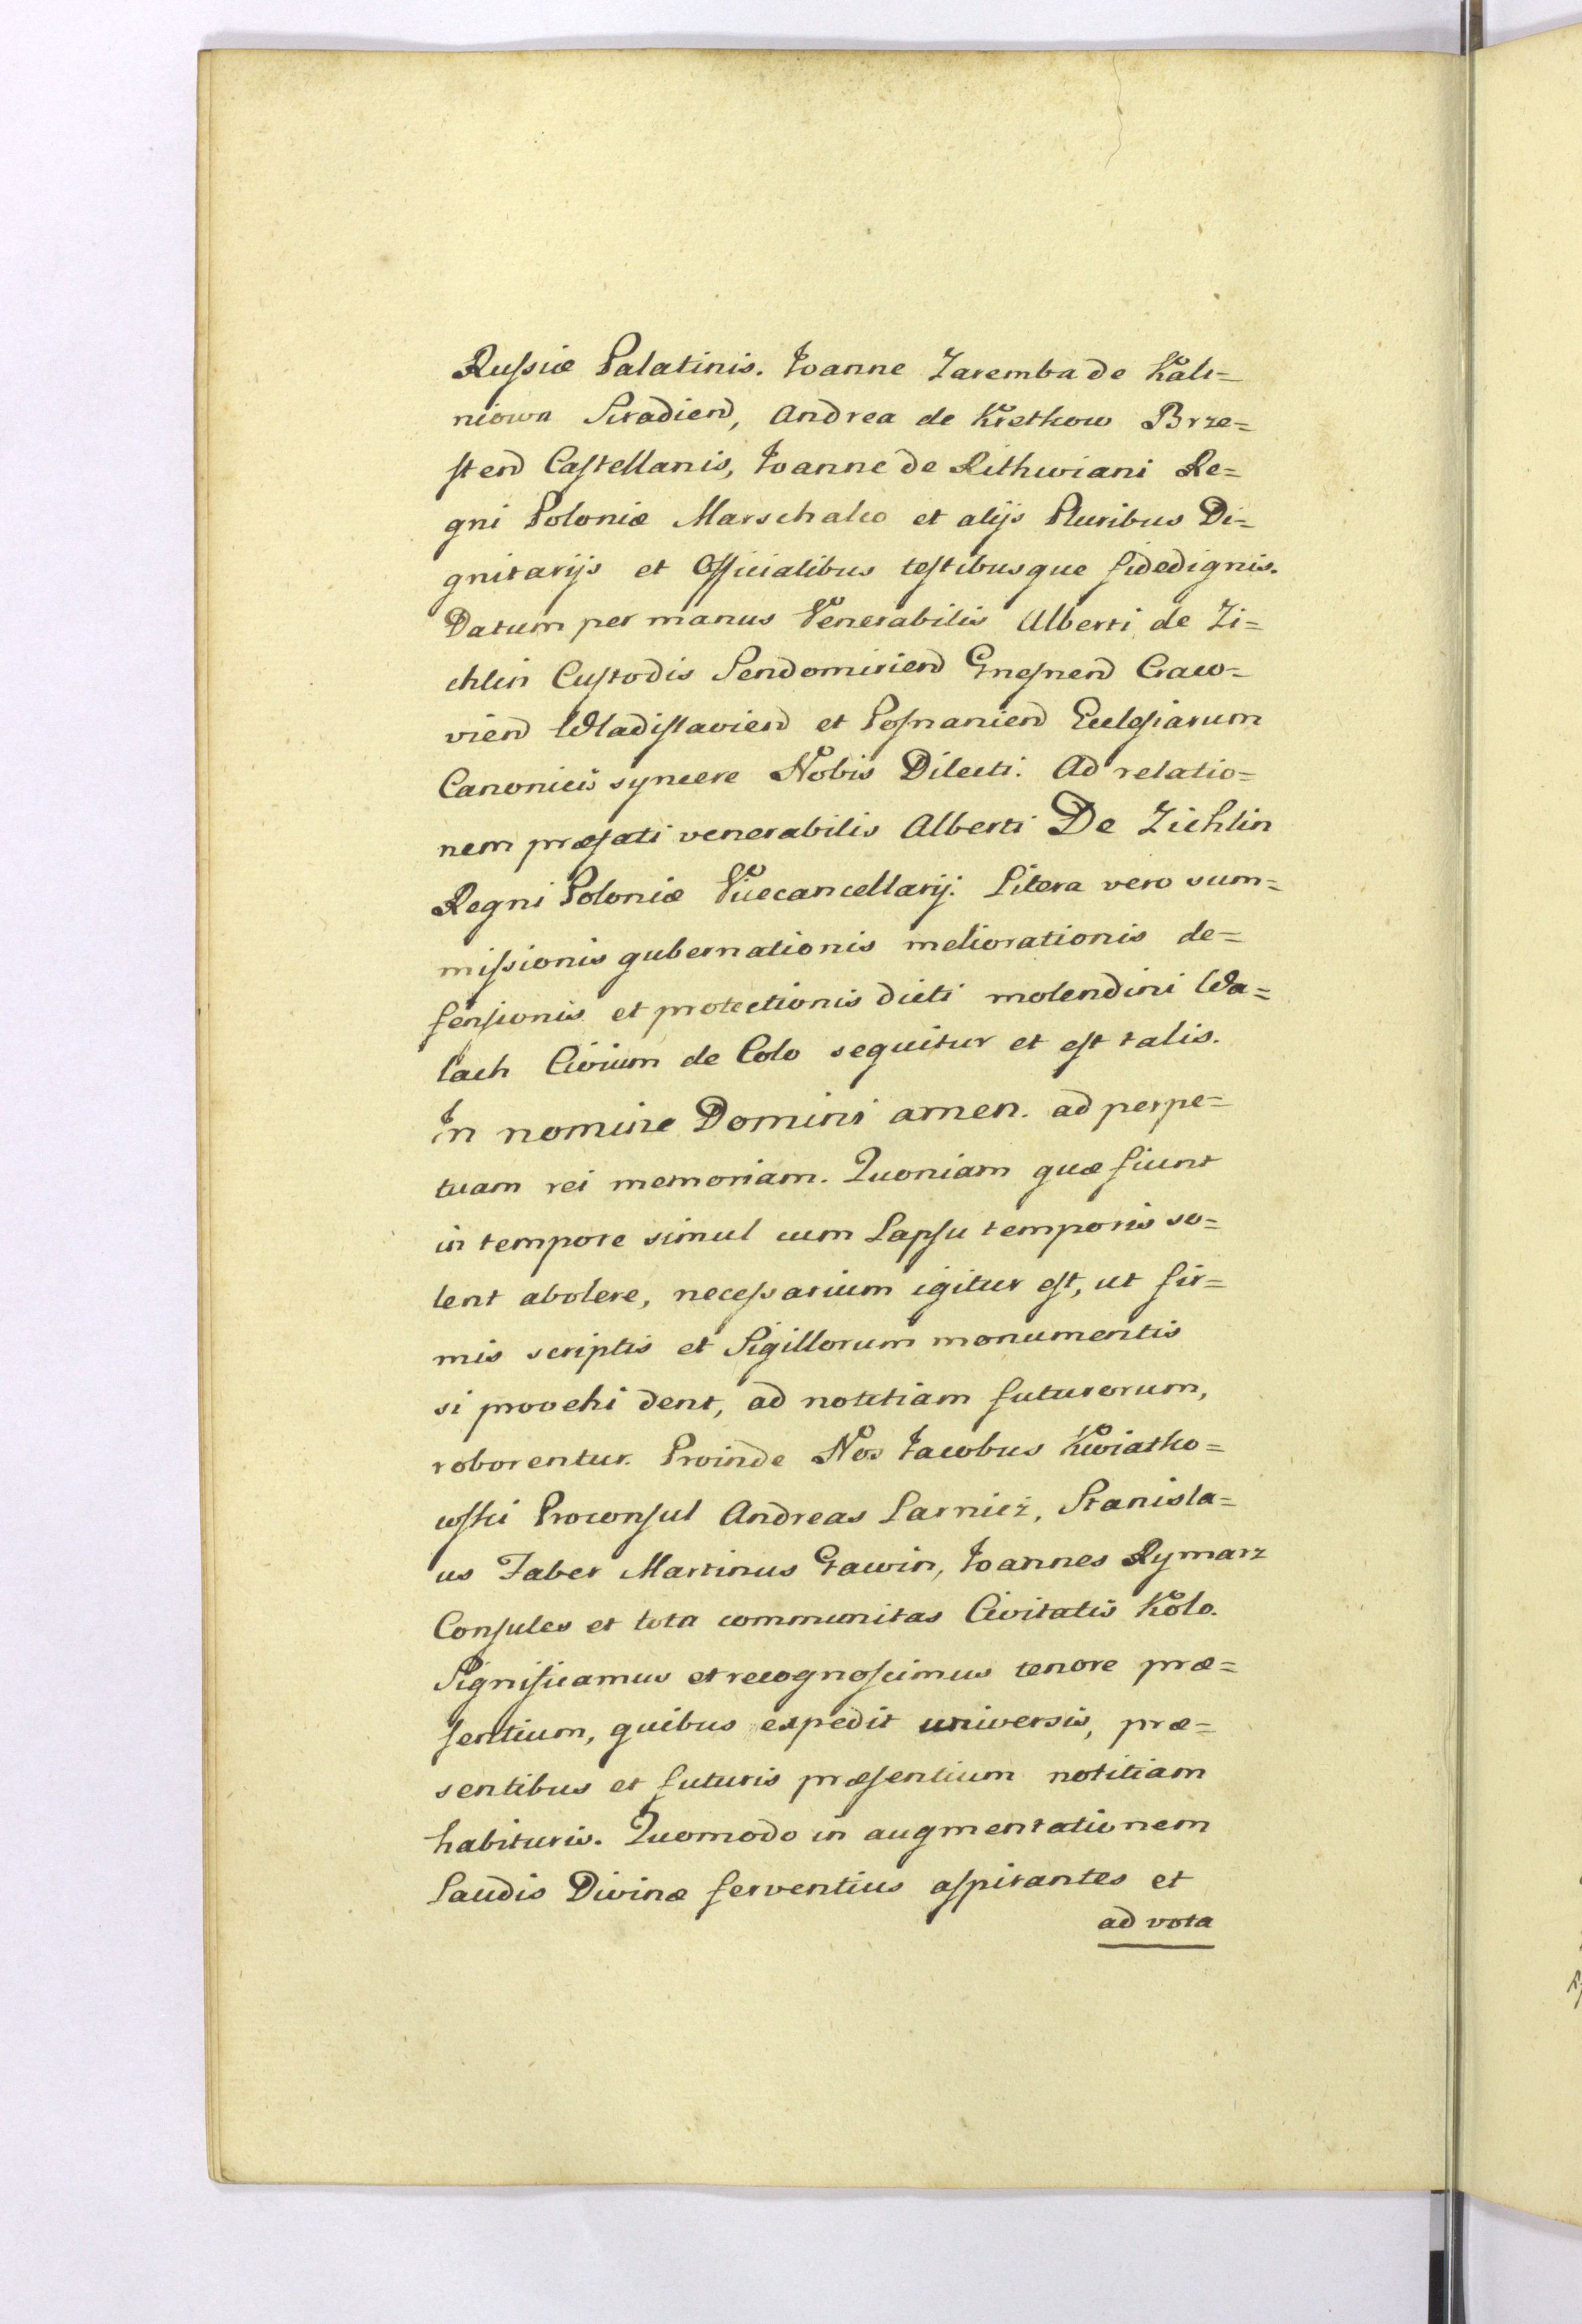 Russiæ Palatinis. Joanne Zaremba de Kali=
niowa Siradien, Andrea de Kretkow Brze=
sten Castellanis, Joanne de Rithwiani Re=
gni Poloniæ Marschalco et alijs Pluribus Di=
gnitarijs et Officialibus testibusque fidedignis.
Datum per manus Venerabilis Alberti de Zi=
chlin Custodis Sendomirien Gnesnen Craco=
vien Wladislavien et Posnanien Ecclesiarum
Canonici syncere Nobis Dilecti. Ad relatio=
nem præfati venerabilis Alberti De Zichlin
Regni Poloniæ Vicecancellarij. Litera vero sum=
missionis gubernationis meliorationis de=
fensionis et protectionis dicti molendini Wa=
lach Civium de Colo sequitur et est talis.
In nomine Domini amen. ad perpe=
tuam rei memoriam. Quoniam quæ fiunt
in tempore simul cum Lapsu temporis so=
lent abolere, necessarium igitur est, ut fir=
mis scriptis et Sigillorum monumentis
si provehi dent, ad notitiam futurorum,
roborentur. Proinde Nos Jacobus Kwiatko=
wski Proconsul Andreas Larnicz, Stanisla=
us Faber Martinus Gawin, Joannes Rymarz
Consules et tota communitas Civitatis Kolo.
Significamus et recognoscimus tenore præ=
sentium, quibus expedit universis, præ=
sentibus et futuris præsentium notitiam
habituris. Quomodo in augmentationem
Laudis Divinæ ferventius aspirantes et
ad vota